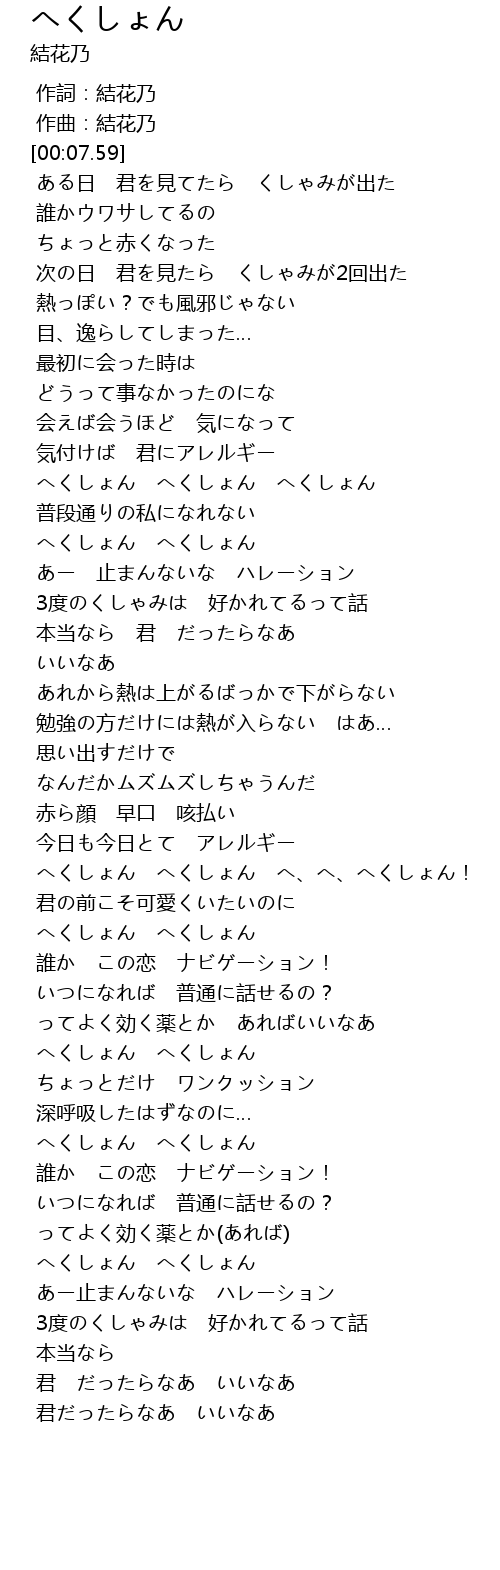 へくしょん
結花乃
作詞：結花乃
作曲：結花乃
[00:07.59]
ある日　君を見てたら　くしゃみが出た
誰かウワサしてるの
ちょっと赤くなった
次の日　君を見たら　くしゃみが2回出た
熱っぽい？でも風邪じゃない
目、逸らしてしまった...
最初に会った時は
どうって事なかったのにな
会えば会うほど　気になって
気付けば　君にアレルギー
へくしょん　へくしょん　へくしょん
普段通りの私になれない
へくしょん　へくしょん
あー　止まんないな　ハレーション
3度のくしゃみは　好かれてるって話
本当なら　君　だったらなあ
いいなあ
あれから熱は上がるばっかで下がらない
勉強の方だけには熱が入らない　はあ...
思い出すだけで
なんだかムズムズしちゃうんだ
赤ら顔　早口　咳払い
今日も今日とて　アレルギー
へくしょん　へくしょん　へ、へ、へくしょん！
君の前こそ可愛くいたいのに
へくしょん　へくしょん
誰か　この恋　ナビゲーション！
いつになれば　普通に話せるの？
ってよく効く薬とか　あればいいなあ
へくしょん　へくしょん
ちょっとだけ　ワンクッション
深呼吸したはずなのに...
へくしょん　へくしょん
誰か　この恋　ナビゲーション！
いつになれば　普通に話せるの？
ってよく効く薬とか(あれば)
へくしょん　へくしょん
あー止まんないな　ハレーション
3度のくしゃみは　好かれてるって話
本当なら
君　だったらなあ　いいなあ
君だったらなあ　いいなあ